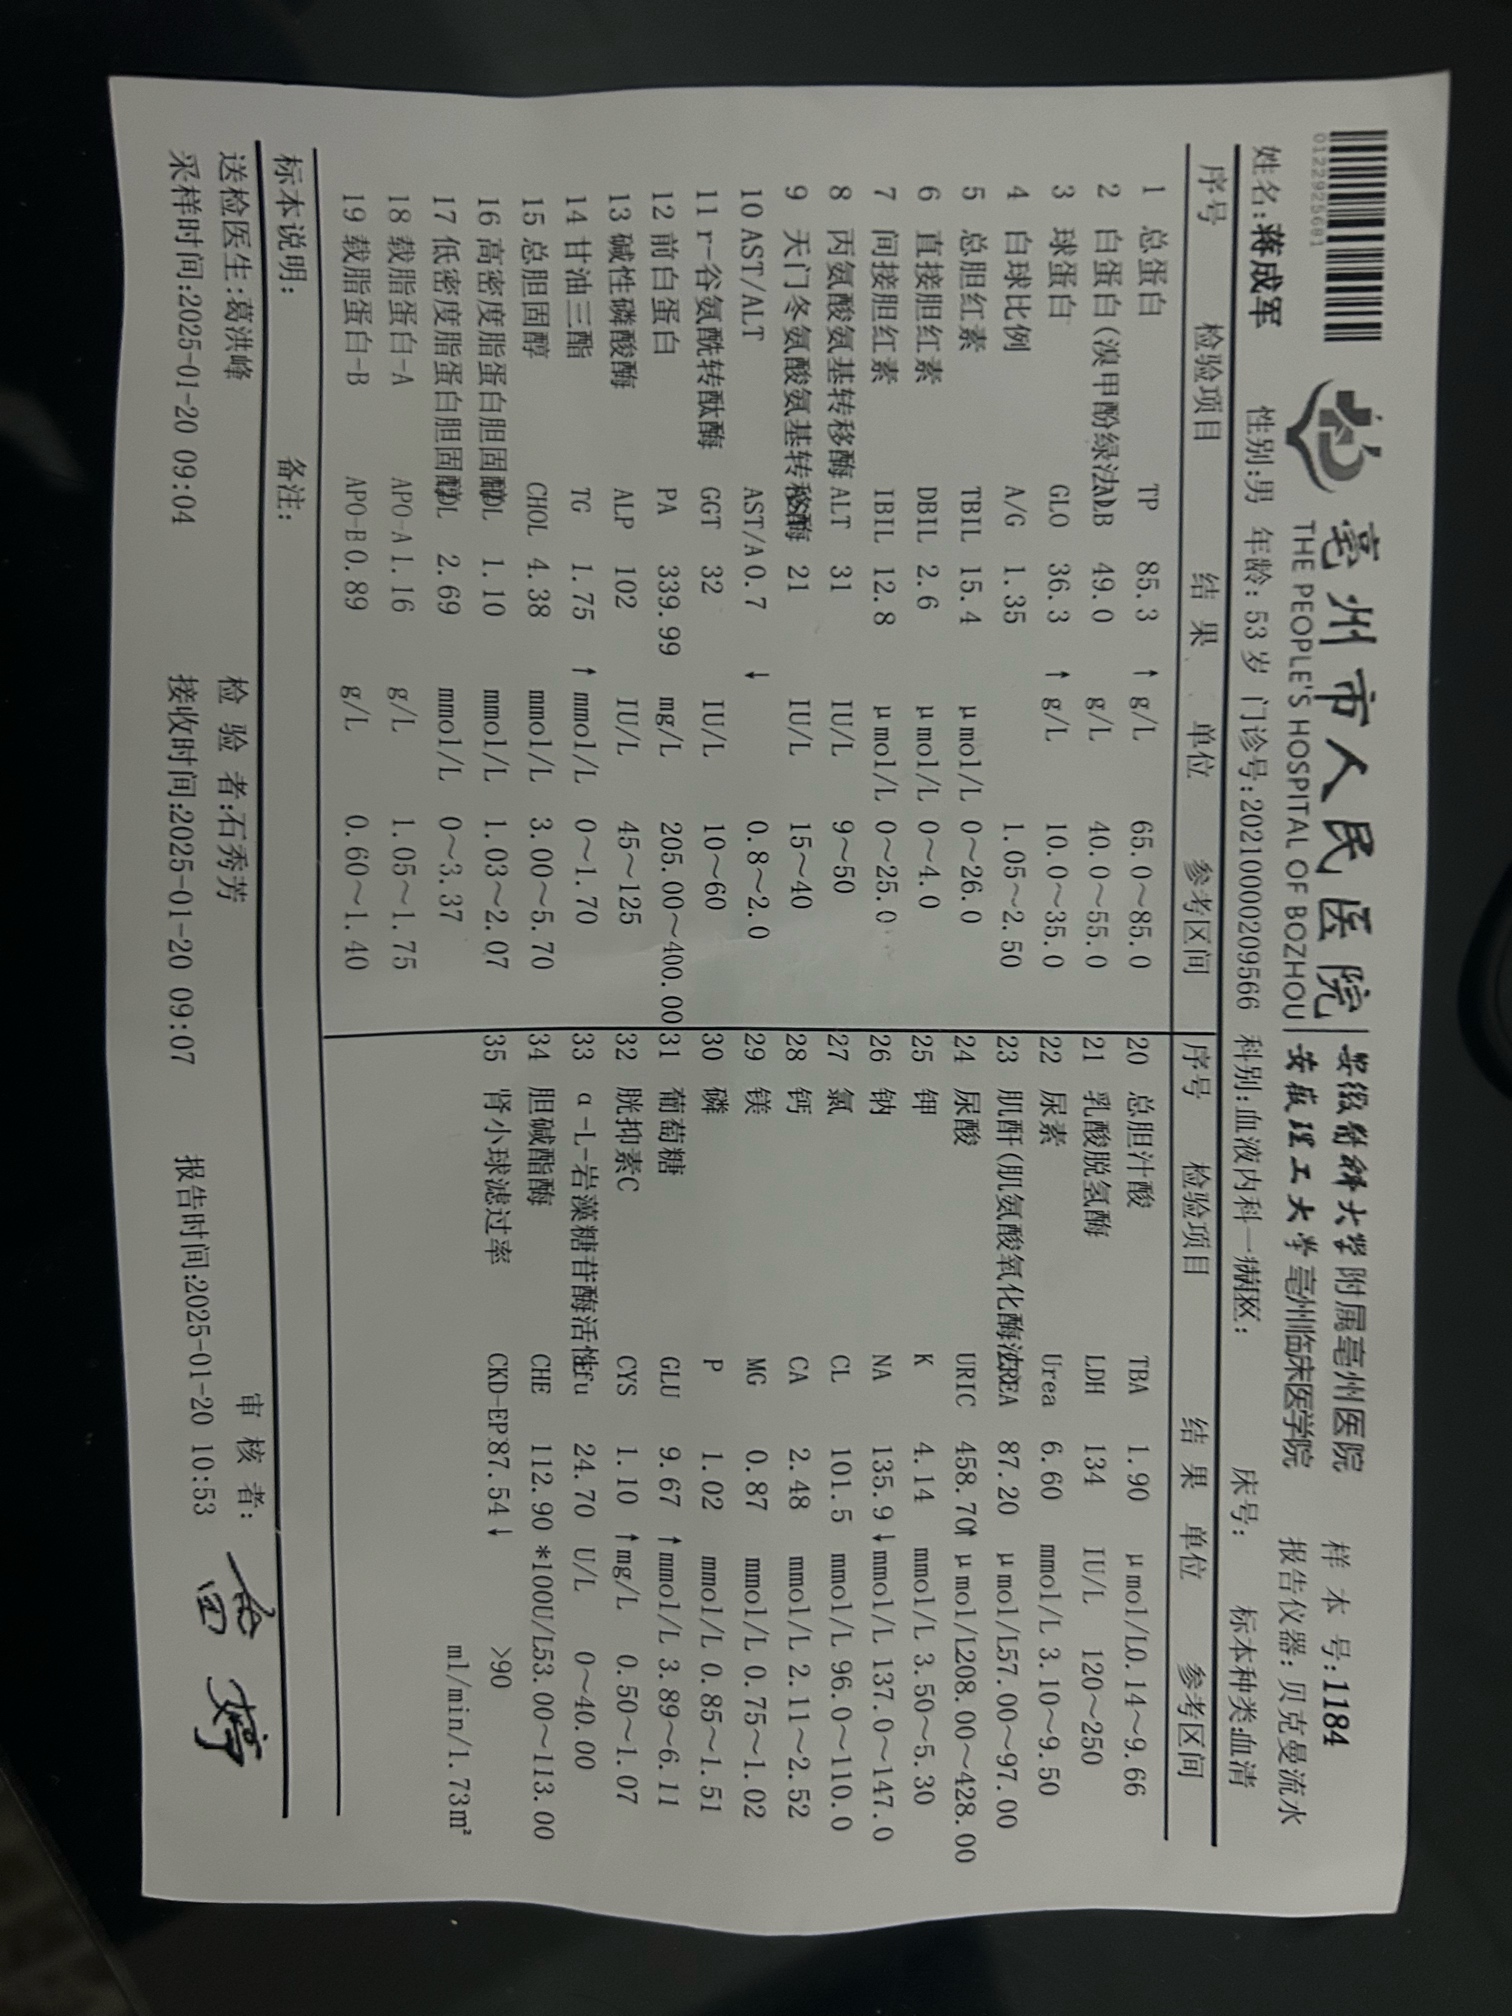 0122925681
亳州市人民医院
THE PEOPLE'S HOSPITAL OF BOZHOU
安徽医科大学附属亳州医院
安徽理工大学亳州临床医学院
样 本 号:1184
报告仪器: 贝克曼流水
姓名:蒋成军 性别:男 年龄: 53 岁 门诊号:2021000209566 科别:血液内科一病区: 床号: 标本种类:血清
序号 检验项目 结 果 单位 参考区间
1 总蛋白 TP 85.3 ↑ g/L 65.0~85.0
2 白蛋白(溴甲酚绿法) ALB 49.0 g/L 40.0~55.0
3 球蛋白 GLO 36.3 ↑ g/L 10.0~35.0
4 白球比例 A/G 1.35 1.05~2.50
5 总胆红素 TBIL 15.4 μmol/L 0~26.0
6 直接胆红素 DBIL 2.6 μmol/L 0~4.0
7 间接胆红素 IBIL 12.8 μmol/L 0~25.0
8 丙氨酸氨基转移酶 ALT 31 IU/L 9~50
9 天门冬氨酸氨基转移酶 21 IU/L 15~40
10 AST/ALT AST/A 0.7 ↓ 0.8~2.0
11 r-谷氨酰转酞酶 GGT 32 IU/L 10~60
12 前白蛋白 PA 339.99 mg/L 205.00~400.00
13 碱性磷酸酶 ALP 102 IU/L 45~125
14 甘油三酯 TG 1.75 ↑ mmol/L 0~1.70
15 总胆固醇 CHOL 4.38 mmol/L 3.00~5.70
16 高密度脂蛋白胆固醇 DL 1.10 mmol/L 1.03~2.07
17 低密度脂蛋白胆固醇 DL 2.69 mmol/L 0~3.37
18 载脂蛋白-A APO-A 1.16 g/L 1.05~1.75
19 载脂蛋白-B APO-B 0.89 g/L 0.60~1.40
序号 检验项目 结 果 单位 参考区间
20 总胆汁酸 TBA 1.90 μmol/L 0.14~9.66
21 乳酸脱氢酶 LDH 134 IU/L 120~250
22 尿素 Urea 6.60 mmol/L 3.10~9.50
23 肌酐(肌氨酸氧化酶法 REA 87.20 μmol/L 57.00~97.00
24 尿酸 URIC 458.70↑ μmol/L 208.00~428.00
25 钾 K 4.14 mmol/L 3.50~5.30
26 钠 NA 135.9 ↓ mmol/L 137.0~147.0
27 氯 CL 101.5 mmol/L 96.0~110.0
28 钙 CA 2.48 mmol/L 2.11~2.52
29 镁 MG 0.87 mmol/L 0.75~1.02
30 磷 P 1.02 mmol/L 0.85~1.51
31 葡萄糖 GLU 9.67 ↑ mmol/L 3.89~6.11
32 胱抑素C CYS 1.10 ↑ mg/L 0.50~1.07
33 α-L-岩藻糖苷酶活性 fu 24.70 U/L 0~40.00
34 胆碱酯酶 CHE 112.90 *100U/L 53.00~113.00
35 肾小球滤过率 CKD-EP 87.54 ↓ >90
ml/min/1.73m²
标本说明: 备注:
送检医生:葛洪峰 检 验 者:石秀芳 审 核 者:
采样时间:2025-01-20 09:04 接收时间:2025-01-20 09:07 报告时间:2025-01-20 10:53